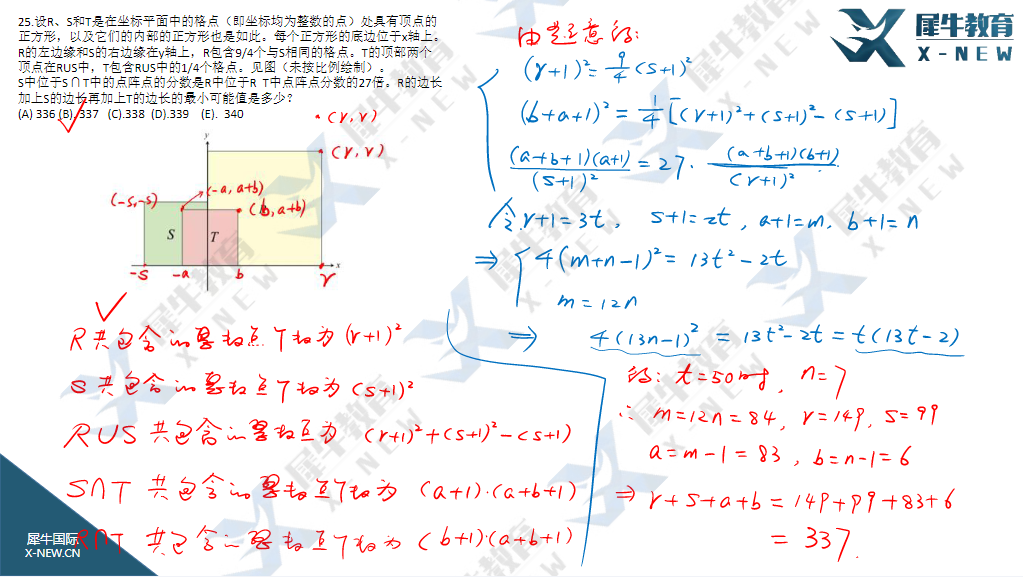 25.设R、S和T是在坐标平面中的格点（即坐标均为整数的点）处具有顶点的
正方形，以及它们的内部的正方形也是如此。每个正方形的底边位于x轴上。
R的左边缘和S的右边缘在y轴上，R包含9/4个与S相同的格点。T的顶部两个
顶点在RUS中，T包含RUS中的1/4个格点。见图（未按比例绘制）。
S中位于S∩T中的点阵点的分数是R中位于R T中点阵点分数的27倍。R的边长
加上S的边长再加上T的边长的最小可能值是多少？
(A) 336 (B). 337 (C).338 (D).339 (E). 340
(r, r)
y
(r, r)
(-a, a+b)
(-s, s)
(b, a+b)
S
T
-s
-a
b
r
x
R共包含的整数点个数为 (r+1)²
S共包含的整数点个数为 (s+1)²
RUS 共包含的整数点为 (r+1)²+(s+1)²-(s+1)
S∩T 共包含的整数点个数为 (a+1)·(a+b+1)
R∩T 共包含的整数点个数为 (b+1)·(a+b+1)
由题意得:
(r+1)² = 9/4 (s+1)²
(b+a+1)² = 1/4 [(r+1)²+(s+1)²-(s+1)]
(a+b+1)(a+1)/(s+1)² = 27· (a+b+1)(b+1)/(r+1)²
令 r+1=3t, s+1=2t, a+1=m, b+1=n
⇒ 4(m+n-1)² = 13t²-2t
m=12n
⇒ 4(13n-1)² = 13t²-2t = t(13t-2)
得: t=50时, n=7
∴ m=12n=84, r=149, s=99
a=m-1=83, b=n-1=6
⇒ r+s+a+b=149+99+83+6
= 337.
犀牛教育
X-NEW
犀牛国际
X-NEW.CN